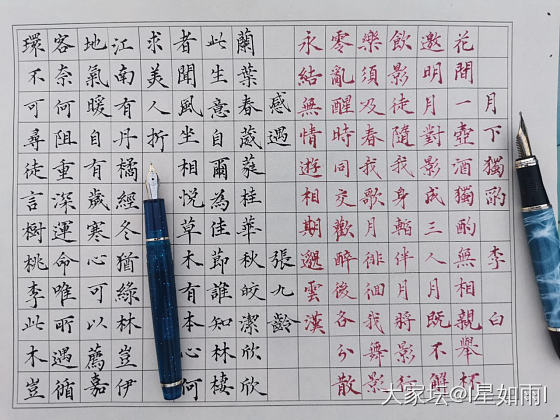 月下獨酌 李白
花間一壺酒獨酌無相親舉杯
邀明月對影成三人月既不解
飲影徒隨我身暫伴月將影行
樂須及春我歌月徘徊我舞影
零亂醒時同交歡醉後各分散
永結無情遊相期邈雲漢
感遇 張九齡
蘭葉春葳蕤桂華秋皎潔欣欣
此生意自爾為佳節誰知林棲
者聞風坐相悅草木有本心何
求美人折
江南有丹橘經冬猶綠林豈伊
地氣暖自有歲寒心可以薦嘉
客奈何阻重深運命唯所遇循
環不可尋徒言樹桃李此木豈
大家坛@I星如雨I